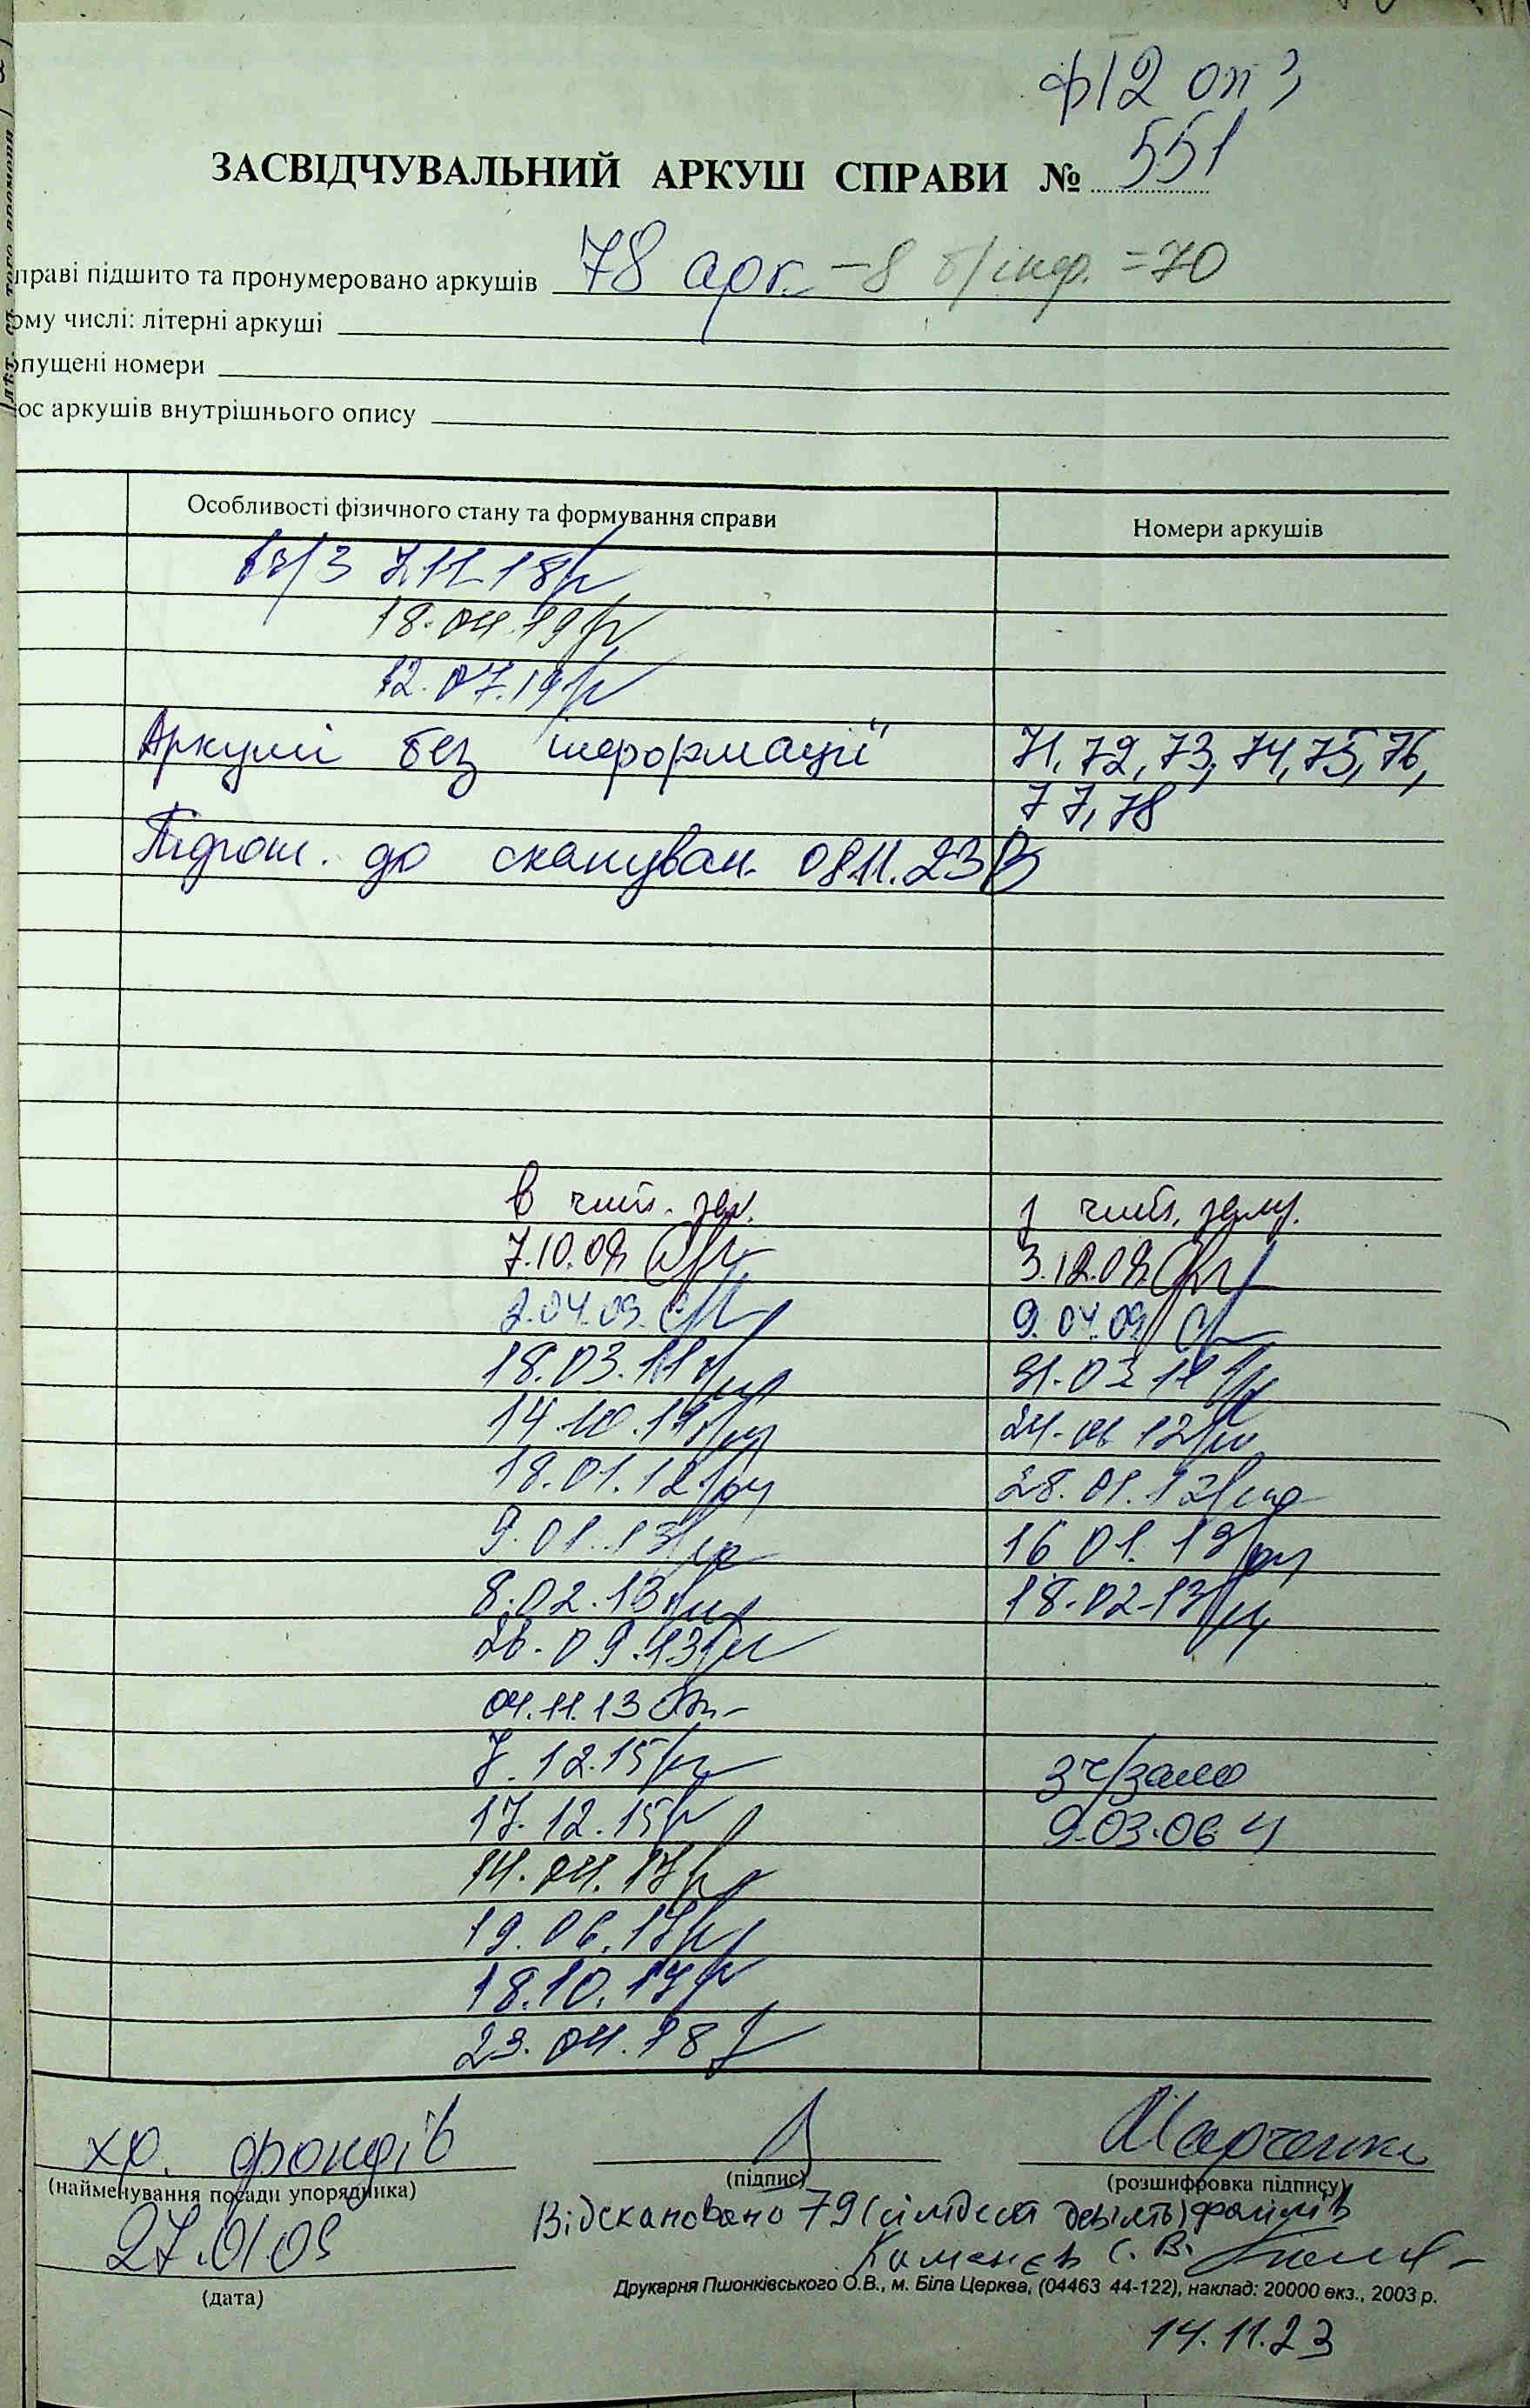 ф12 оп 3
ЗАСВІДЧУВАЛЬНИЙ АРКУШ СПРАВИ № 551
праві підшито та пронумеровано аркушів 78 арк. – 8 б/інф. = 70
ому числі: літерні аркуші
опущені номери
ос аркушів внутрішнього опису
Особливості фізичного стану та формування справи Номери аркушів
7.11.18
18.04.19
12.07.19
Аркуші без інформації 71, 72, 73, 74, 75, 76,
77, 78
Підгот. до скануван. 08.11.23
в чит. зал. з чит. залу.
7.10.08 3.12.08
2.04.09. 9.04.09
18.03.11 31.03.11
14.10.11
18.01.12 28.01.12
9.01.13 16.01.13
8.02.13 18.02.13
26.09.13
04.11.13
7.12.15 з ч/залю
17.12.15 9.03.06
14.04.17
19.06.17
18.10.17
23.04.18
хр. фондів Марченко
(найменування посади упорядника) (підпис) (розшифровка підпису)
Відскановано 79 (сімдесят девять) файлів
27.01.05 Каменєв С. В.
(дата)
Друкарня Пшонківського О.В., м. Біла Церква, (04463 44-122), наклад: 20000 екз., 2003 р.
14.11.23